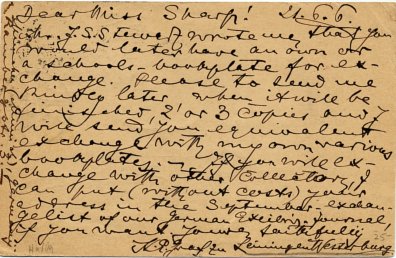 Dear Miss Sharp! 21.6.6.
Mr. T.S. Stewart wrote me that you
would later have an own or
a schools-bookplate for ex-
change. Please to send me
kindly later, when it will be
finished, 2 or 3 copies and I
will send you equivalent
exchange with my own various
bookplates. If you will ex-
change with other collectors, I
can put (without costs) your
address in the September exchan-
gelist of our German Exlibris-journal
if you want. Yours faithfully
Leiningen Westerburg.